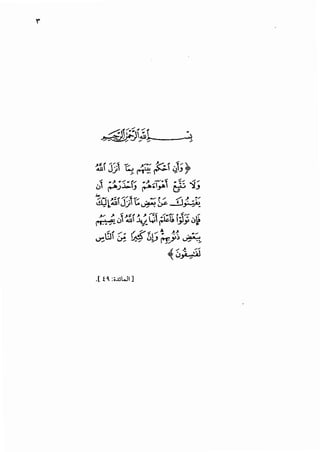 ٣
بسم الله الرحمن الرحيم
﴿ وَأَنِ ٱحْكُم بَيْنَهُم بِمَآ أَنزَلَ ٱللَّهُ
وَلَا تَتَّبِعْ أَهْوَآءَهُمْ وَٱحْذَرْهُمْ أَن
يَفْتِنُوكَ عَنۢ بَعْضِ مَآ أَنزَلَ ٱللَّهُ إِلَيْكَ
فَإِن تَوَلَّوْا۟ فَٱعْلَمْ أَنَّمَا يُرِيدُ ٱللَّهُ أَن يُصِيبَهُم
بِبَعْضِ ذُنُوبِهِمْ وَإِنَّ كَثِيرًا مِّنَ ٱلنَّاسِ
لَفَٰسِقُونَ ﴾
[ المائدة: ٤٩ ].